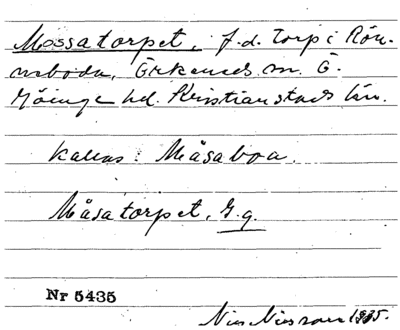 Mossatorpet, f.d. torp i Rön-
neboda, Örkeneds sn. Ö.
Göinge hd. Kristianstads län.
kallas: Måsaboa.
Måsatorpet, G.g.
Nr 5435
Nils Nilsson 1935.